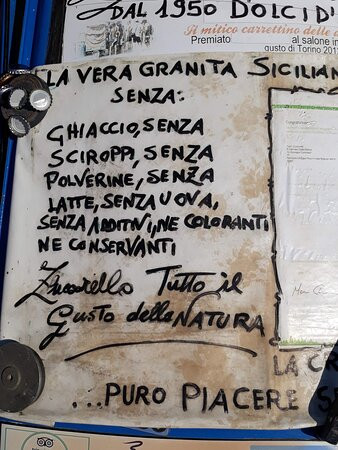 DAL 1950 DOLCI DI
Il mitico carrettino delle
Premiato al salone in
gusto di Torino 201
LA VERA GRANITA SICILIAN
SENZA:
GHIACCIO, SENZA
SCIROPPI, SENZA
POLVERINE, SENZA
LATTE, SENZA UOVA,
SENZA ADDITIVI, NE COLORANTI
NE CONSERVANTI
Tutto il
Gusto della NATURA
LA
...PURO PIACERE